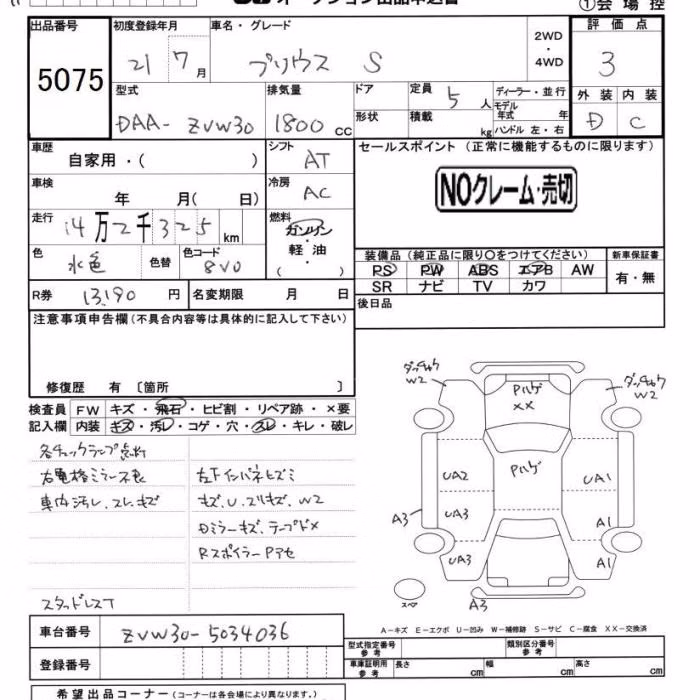 オークション出品申込書 ①会場控
出品番号 初度登録年月 車名・グレード 評価点
5075 21 7月 プリウス S 2WD・4WD 3
型式 排気量 ドア 定員 5人 ディーラー・並行 外装 内装
DAA-ZVW30 1800cc 形状 積載 kg モデル年式 年 ハンドル 左・右 D C
車歴 シフト セールスポイント (正常に機能するものに限ります)
自家用・( ) AT
車検 年 月( 日) 冷房 AC NOクレーム・売切
走行 14万2千325km 燃料 ガソリン・軽油・( )
色 水色 色替 色コード 8V0
装備品(純正品に限り○をつけてください) 新車保証書
PS PW ABS エアB AW 有・無
SR ナビ TV カワ
R券 13,190円 名変期限 月 日 後日品
注意事項申告欄(不具合内容等は具体的に記入して下さい)
修復歴 有 〔箇所 〕
検査員 FW キズ・飛石・ヒビ割・リペア跡・×要
記入欄 内装 キズ・汚レ・コゲ・穴・スレ・キレ・破レ
各チェックランプ点灯
右電格ミラー不良 左下インパネヒズミ
車内汚レ、スレ、キズ キズ、U、スリキズ、W2
Dミラーキズ、テープドメ
RスポイラーPアセ
スタッドレスT
W2
W2
Pハゲ
XX
Pハゲ
UA2 UA1
A3 UA3 A1
UA3 A1
スペア A3
A-キズ E-エクボ U-凹み W-補修跡 S-サビ C-腐食 XX-交換済
車台番号 ZVW30-5034036
型式指定番号 参考 類別区分番号 参考
登録番号 車庫証明用 参考 長さ cm 幅 cm 高さ cm
希望出品コーナー(コーナーは各会場により異なります。)